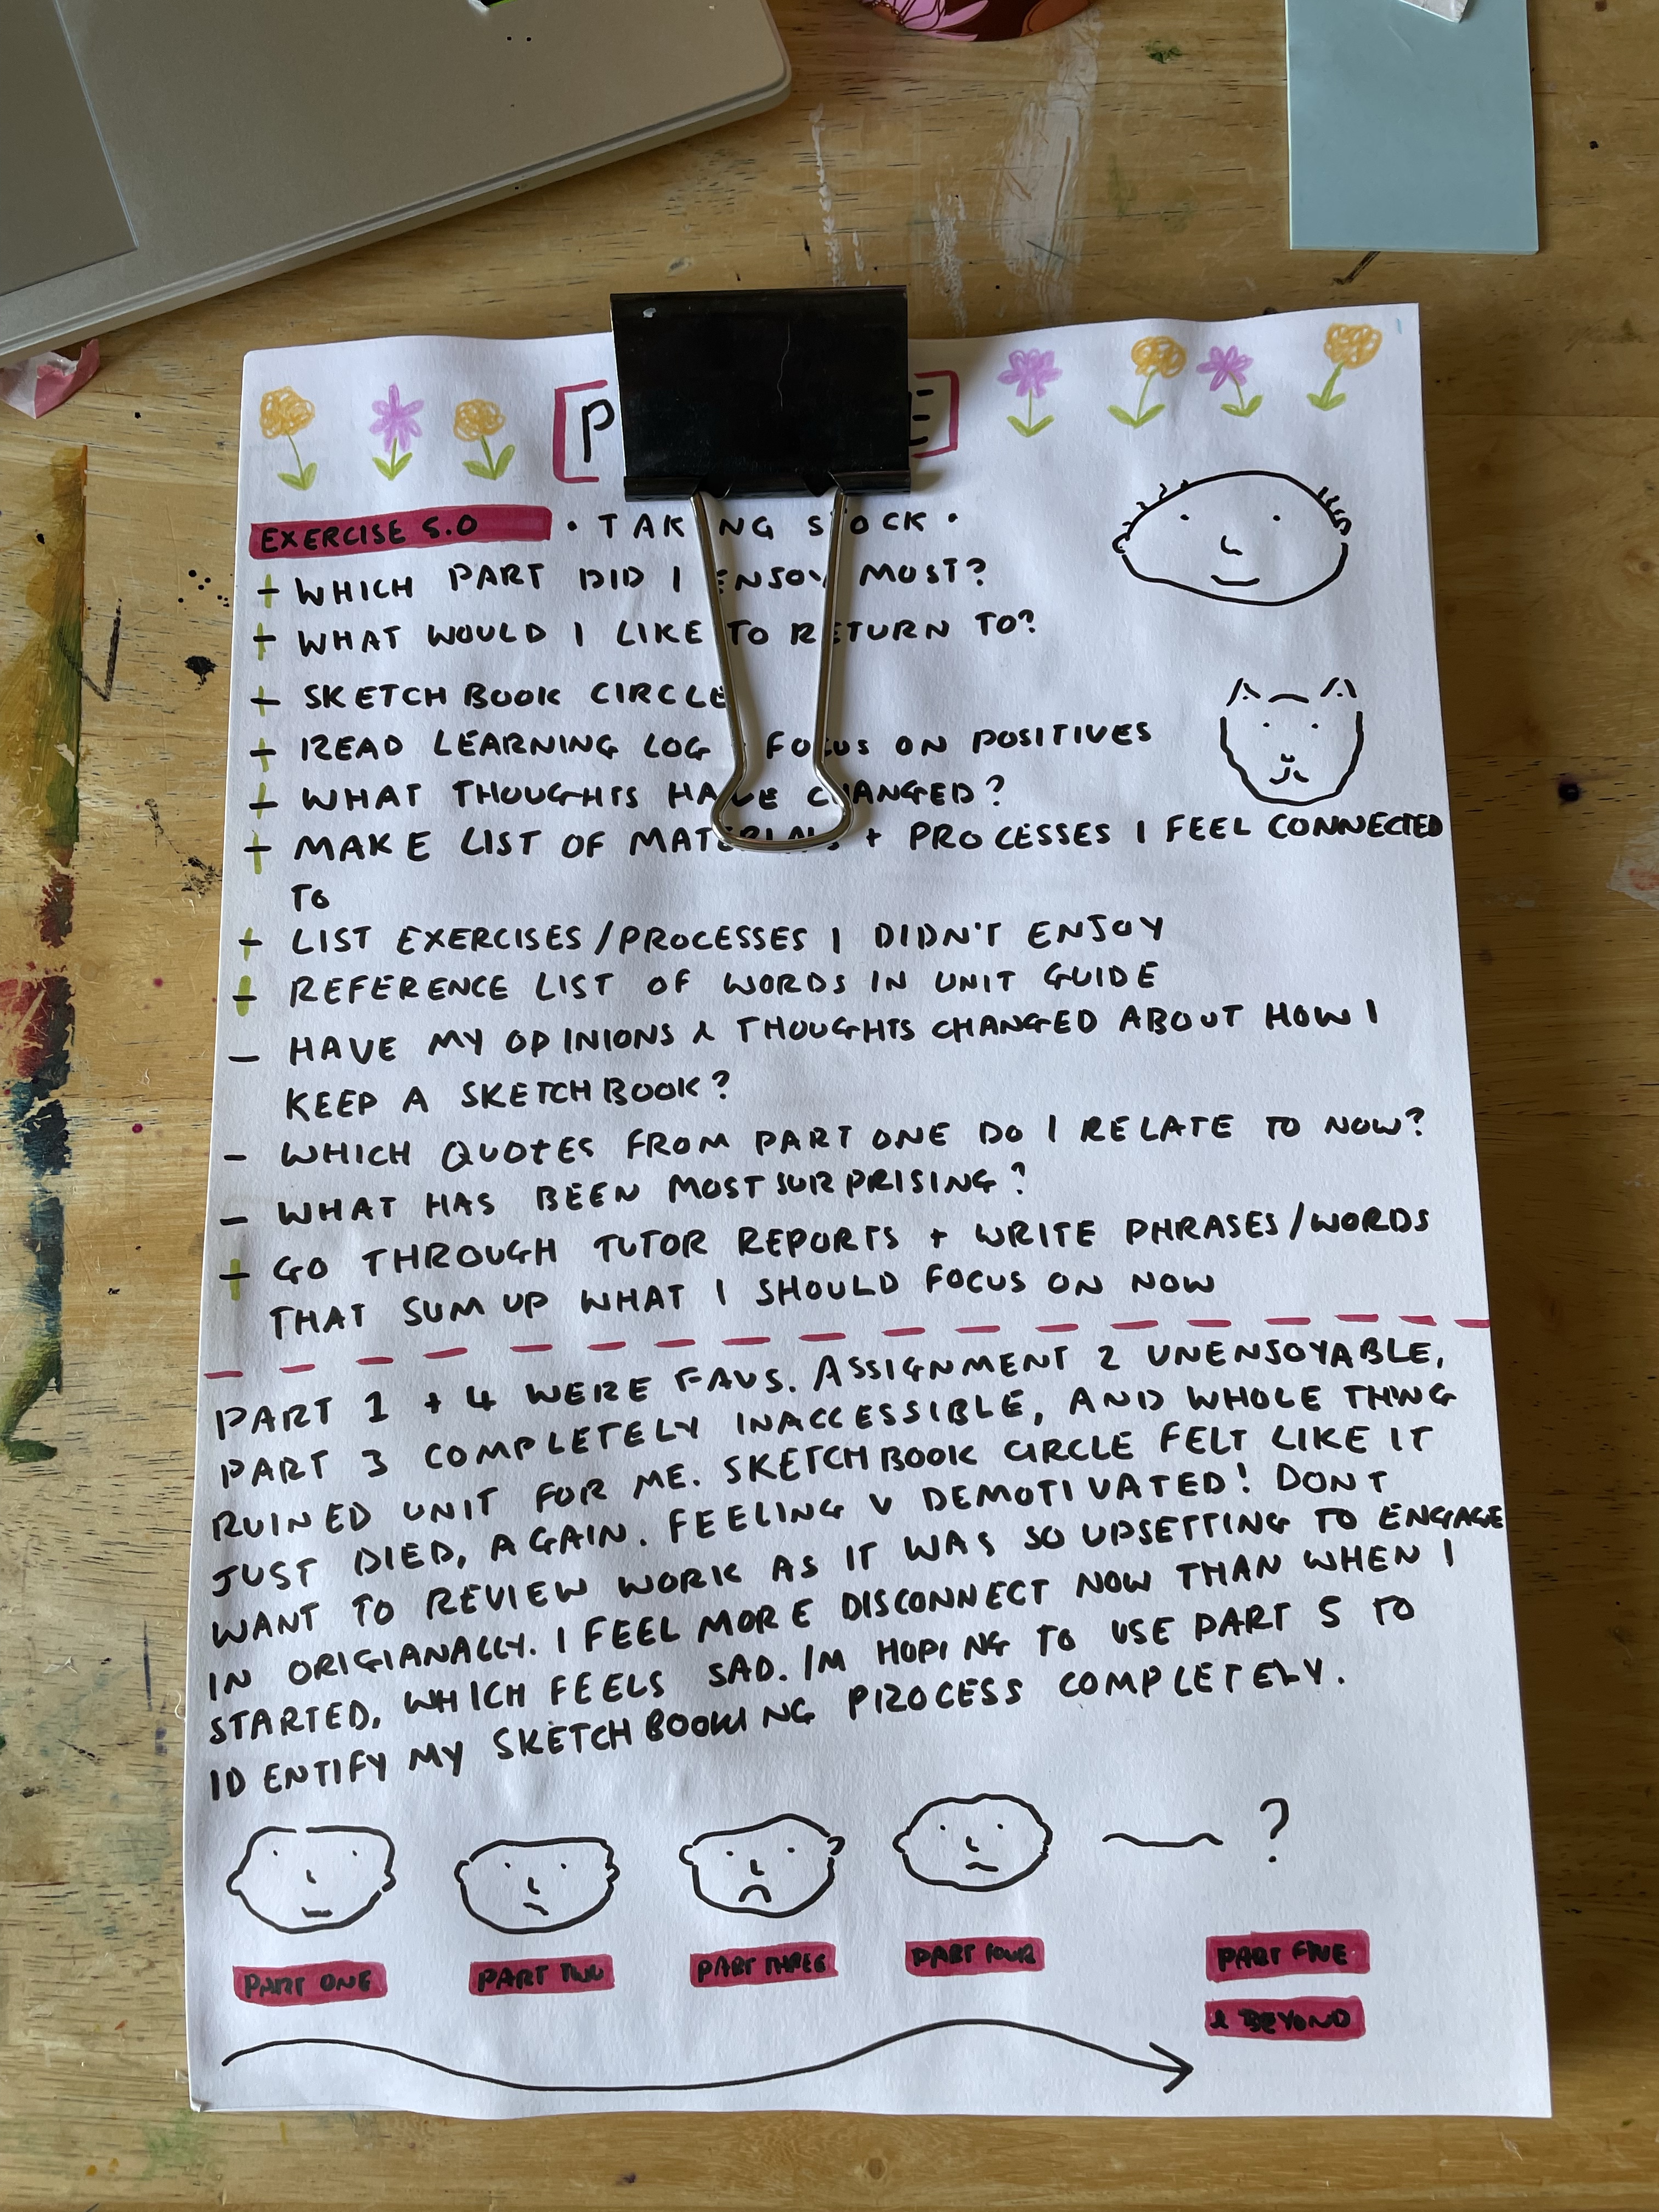 EXERCISE 5.0 • TAKING STOCK •
+ WHICH PART DID I ENJOY MOST?
+ WHAT WOULD I LIKE TO RETURN TO?
- SKETCHBOOK CIRCLE
+ READ LEARNING LOG - FOCUS ON POSITIVES
+ WHAT THOUGHTS HAVE CHANGED?
+ MAKE LIST OF MATERIALS + PROCESSES I FEEL CONNECTED
TO
+ LIST EXERCISES/PROCESSES I DIDN'T ENJOY
+ REFERENCE LIST OF WORDS IN UNIT GUIDE
- HAVE MY OPINIONS & THOUGHTS CHANGED ABOUT HOW I
KEEP A SKETCHBOOK?
- WHICH QUOTES FROM PART ONE DO I RELATE TO NOW?
- WHAT HAS BEEN MOST SURPRISING?
+ GO THROUGH TUTOR REPORTS + WRITE PHRASES/WORDS
THAT SUM UP WHAT I SHOULD FOCUS ON NOW
PART 1 + 4 WERE FAVS. ASSIGNMENT 2 UNENJOYABLE,
PART 3 COMPLETELY INACCESSIBLE, AND WHOLE THING
RUINED UNIT FOR ME. SKETCHBOOK CIRCLE FELT LIKE IT
JUST DIED, AGAIN. FEELING V DEMOTIVATED! DONT
WANT TO REVIEW WORK AS IT WAS SO UPSETTING TO ENGAGE
IN ORIGIANALLY. I FEEL MORE DISCONNECT NOW THAN WHEN I
STARTED, WHICH FEELS SAD. I'M HOPING TO USE PART 5 TO
IDENTIFY MY SKETCHBOOKING PROCESS COMPLETELY.
?
PART ONE PART TWO PART THREE PART FOUR PART FIVE
& BEYOND